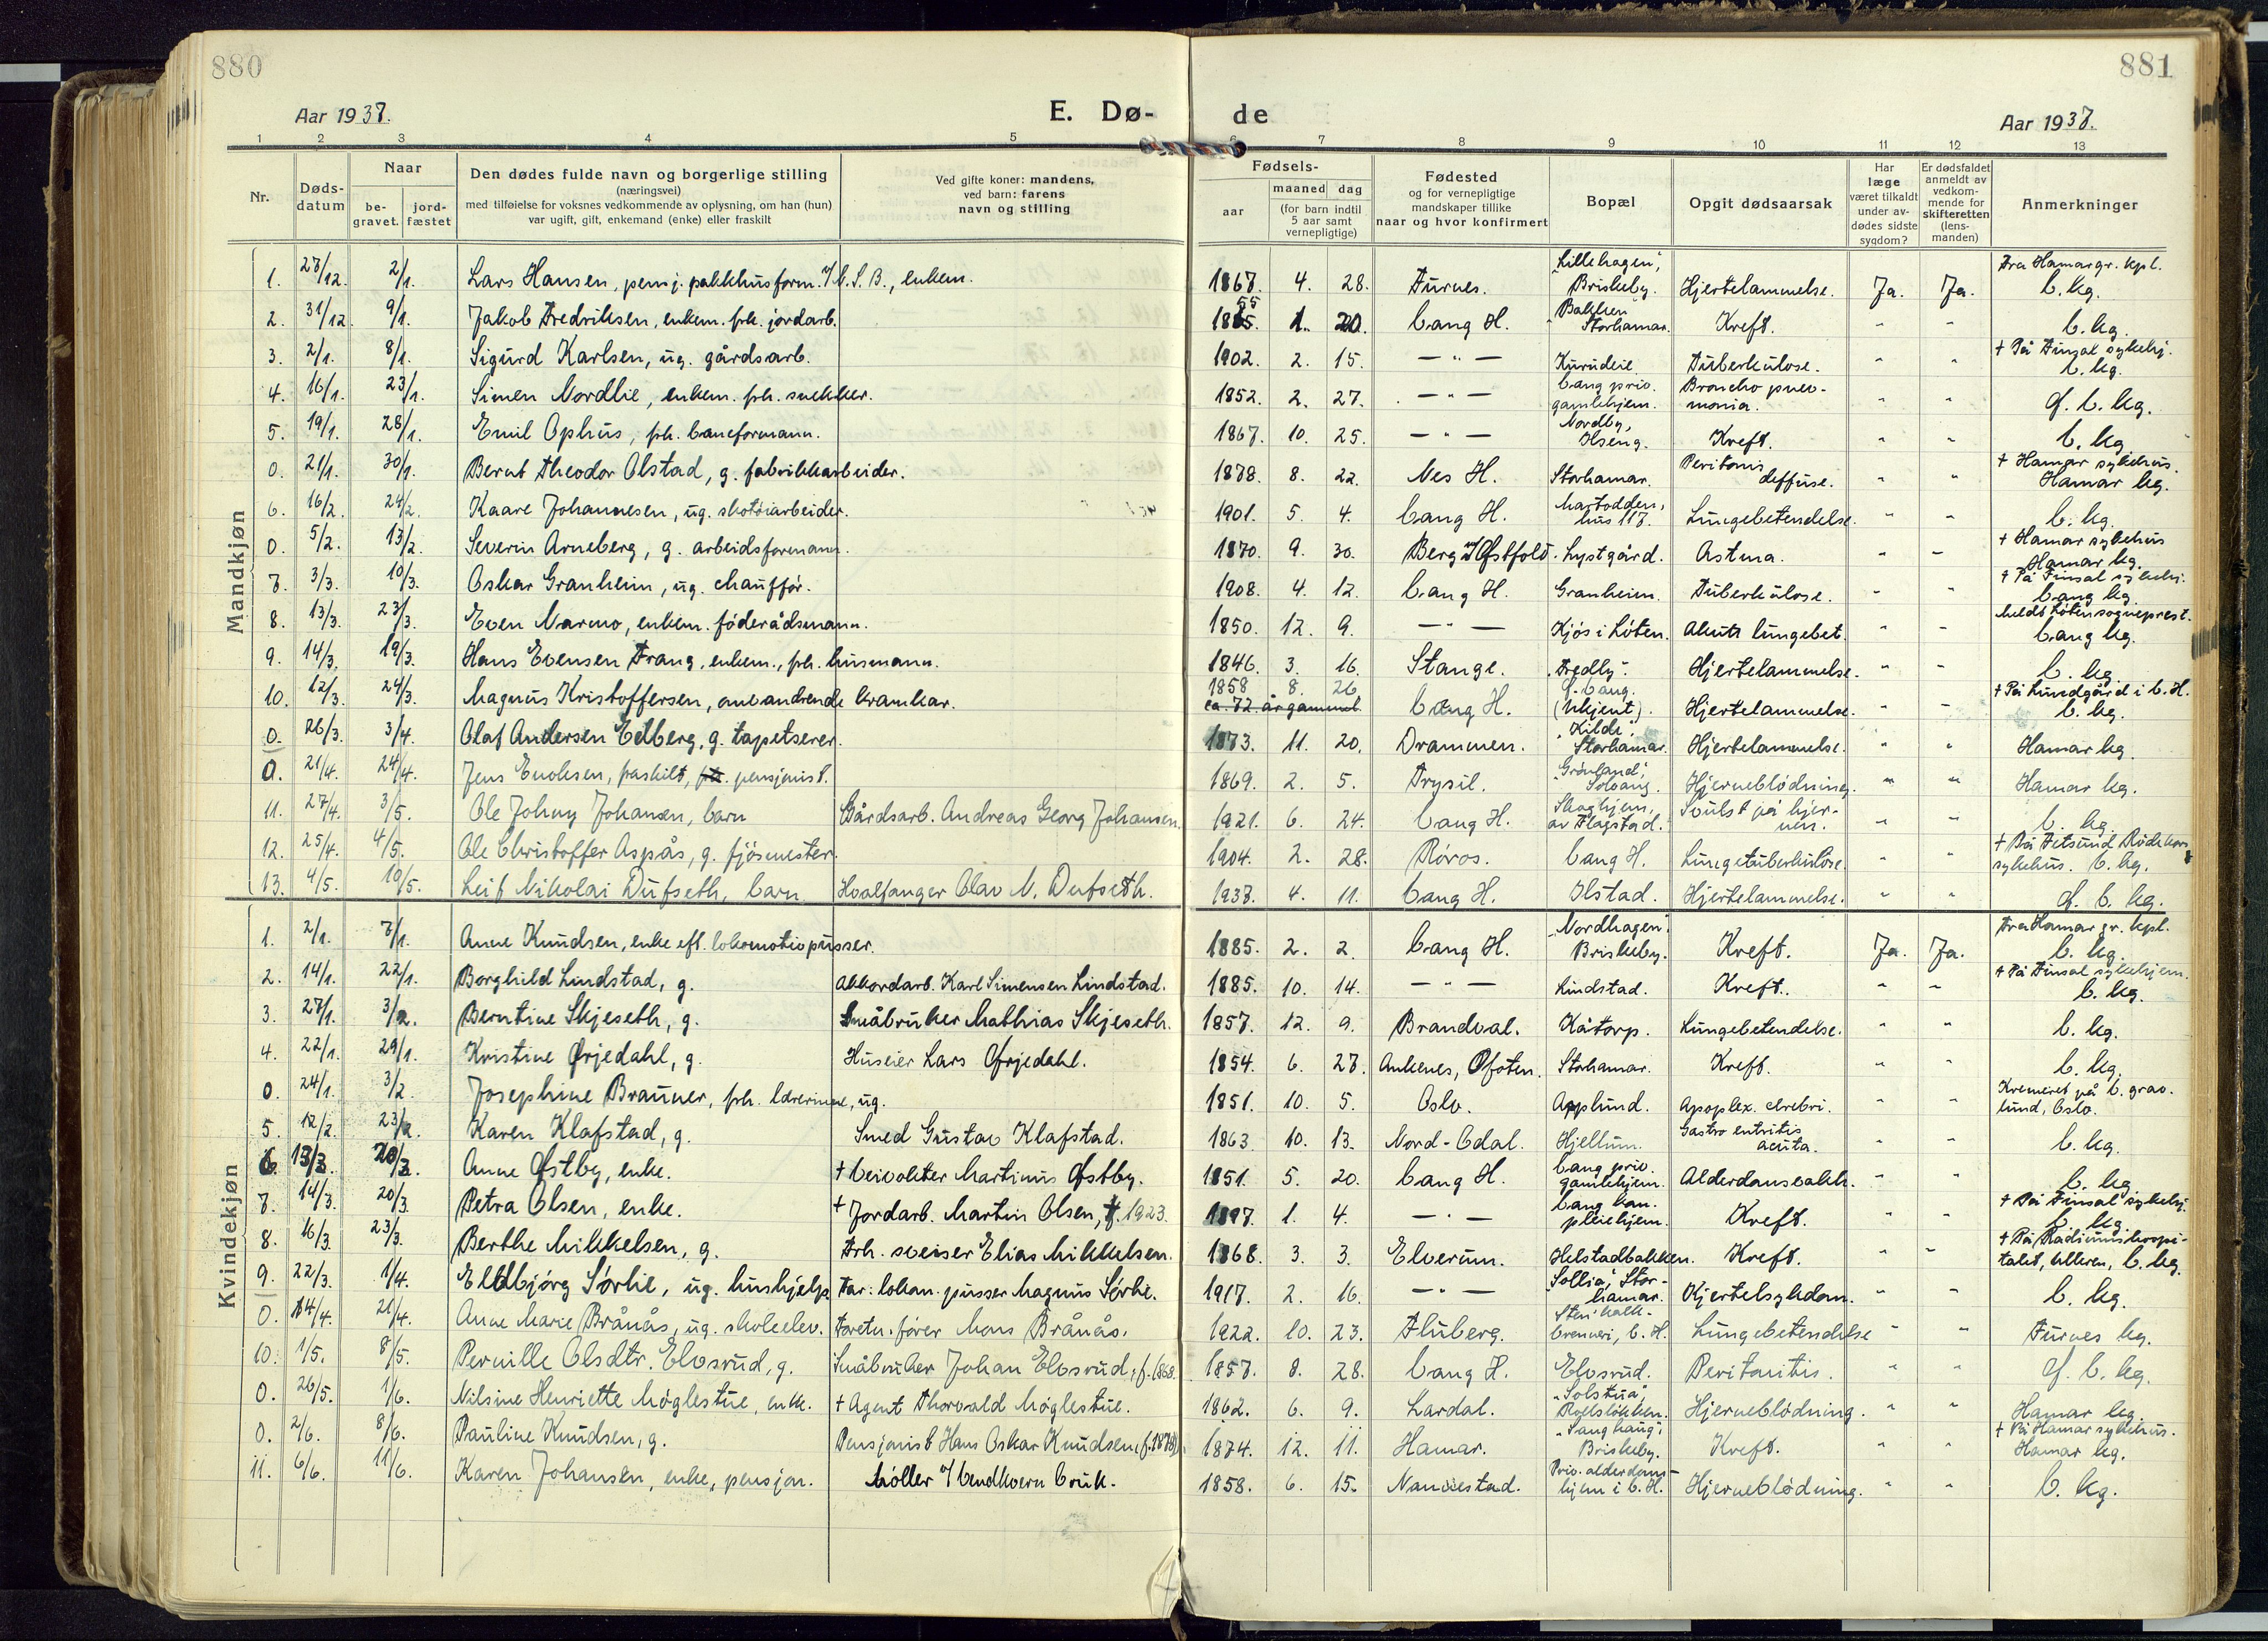 880
881
Aar 1937.
E. Dø-
de
Aar 1937.
1 2 3 4 5 6 7 8 9 10 11 12 13
Nr.
Døds-
datum
Naar
be-
gravet.
jord-
fæstet
Den dødes fulde navn og borgerlige stilling
(næringsvei)
med tilføielse for voksnes vedkommende av oplysning, om han (hun)
var ugift, gift, enkemand (enke) eller fraskilt
Ved gifte koner: mandens,
ved barn: farens
navn og stilling
Fødsels-
aar
maaned dag
(for barn indtil
5 aar samt
vernepligtige)
Fødested
og for vernepligtige
mandskaper tillike
naar og hvor konfirmert
Bopæl
Opgit dødsaarsak
Har
læge
været tilkaldt
under av-
dødes sidste
sygdom?
Er dødsfaldet
anmeldt av
vedkom-
mende for
skifteretten
(lens-
manden)
Anmerkninger
Mandkjøn
1. 27/12. 2/1. Lars Hansen, pensj. pakkhusform. v/N.S.B., enkem. 1867. 4. 28. Furnes. "Lillehagen", Briskeby. Hjertelammelse. Ja. Ja. Fra Hamar gr. kpl. V. kg.
2. 31/12. 9/1. Jakob Fredriksen, enkem. frh. jordarb. 1855. 1. 20. Vang H. "Bakken" Storhamar. Kreft. " " V. kg.
3. 2/1. 8/1. Sigurd Karlsen, ug. gårdsarb. 1902. 2. 15. — " — Kurudeie Tuberkulose. " " † På Finsal sykehj. V. kg.
4. 16/1. 23/1. Simen Nordlie, enkem. frh. snekker. 1852. 2. 27. — " — Vang priv. gamlehjem. Broncho pneu- monia. " " Ø. V. kg.
5. 19/1. 28/1. Emil Ophus, frh. baneformann. 1867. 10. 25. — " — Nordby, Ilseng. Kreft. " " V. kg.
0. 21/1. 30/1. Bernt Theodor Olstad, g. fabrikkarbeider. 1878. 8. 22. Nes H. Storhamar. Peritonis deffuse. " " † Hamar sykehus. Hamar kg.
6. 16/2. 24/2. Kaare Johannesen, ug. skotøiarbeider. 1901. 5. 4. Vang H. Martodden, hus 117. Lungebetendelse. " " V. kg.
0. 5/2. 13/2. Severin Arneberg, g. arbeidsformann. 1870. 9. 30. Berg i Østfold. Lystgård. Astma. " " † Hamar sykehus Hamar kg.
7. 3/3. 10/3. Oskar Granheim, ug. chauffør. 1908. 4. 12. Vang H. Granheim. Tuberkulose. " " † På Finsal sykehj. Vang kg.
8. 13/3. 23/3. Even Narmo, enkem. føderådsmann. 1850. 12. 9. — " — Kjøs i Løten. Akutt lungebet. " " Meldt Løten sogneprest. Vang kg.
9. 14/3. 19/3. Hans Evensen Frang, enkem., frh. husmann. 1846. 3. 16. Stange. "Fredly". Hjertelammelse. " " V. kg.
10. 12/3. 24/3. Magnus Kristoffersen, omvandrende kramkar. 1858 8. 26 ca. 72 år gammel. Vang H. Ø. Vang. (Ukjent). Hjertelammelse. " " † På Lundgård i V. H. V. kg.
0. 26/3. 3/4. Olaf Andersen Edberg, g. tapetserer. 1873. 11. 20. Drammen. "Kilde", Storhamar. Hjertelammelse. " " Hamar kg.
0. 21/4. 24/4. Jens Enoksen, fraskilt, frh. pensjonist. 1869. 2. 5. Trysil. "Grønland", Solvang. Hjerneblødning. " " Hamar kg.
11. 27/4. 3/5. Ole Johny Johansen, barn Gårdsarb. Andreas Georg Johansen. 1921. 6. 24. Vang H. Skoghjem, av Flagstad. Svulst på hjer- nen. " " V. kg.
12. 25/4. 4/5. Ole Christoffer Aspås, g. fjøsmester. 1904. 2. 28. Røros. Vang H. Lungetuberkulose. " " † På Fetsund Røde kors sykehus. V. kg.
13. 4/5. 10/5. Leif Nikolai Dufseth, barn Hvalfanger Olav N. Dufseth. 1937. 4. 11. Vang H. Ilstad. Hjertelammelse. " " Ø. V. kg.
Kvindekjøn
1. 2/1. 7/1. Anne Knudsen, enke eft. lokomotivpusser. 1885. 2. 2. Vang H. "Nordhagen", Briskeby. Kreft. Ja. Ja. Fra Hamar gr. kpl. V. kg.
2. 14/1. 22/1. Borghild Lindstad, g. Akkordarb. Karl Simensen Lindstad. 1885. 10. 14. — " — Lindstad. Kreft. " " † På Finsal sykehjem. V. kg.
3. 27/1. 3/2. Berntine Skjeseth, g. Småbruker Mathias Skjeseth. 1857. 12. 9. Brandval. Kåtorp. Lungebetendelse. " " V. kg.
4. 22/1. 29/1. Kristine Ørjedahl, g. Huseier Lars Ørjedahl. 1854. 6. 27. Ankenes, Ofoten. Storhamar. Kreft. " " V. kg.
0. 24/1. 3/2 Josephine Brauner, frh. lærerinne, ug. 1851. 10. 5. Oslo. Applund. Apoplex. cerebri. " " Kremeret på V. grav- lund, Oslo.
5. 12/2. 23/2. Karen Klafstad, g. Smed Gustav Klafstad. 1863 10. 13. Nord-Odal. Hjellum. Gastro entritis acuta. " " V. kg.
6. 13/3. 20/3. Anne Østby, enke. † Veivokter Martinus Østby. 1851. 5. 20. Vang H. Vang priv. gamlehjem. Alderdomsvakh. " " V. kg.
7. 14/3. 20/3. Petra Olsen, enke. † Jordarb. Martin Olsen, †. 1923. 1897. 1. 4. — " — Vang kom. pleiehjem. Kreft. " " † På Finsal sykehj. V. kg.
8. 16/3. 23/3. Berthe Mikkelsen, g. Frh. sveiser Elias Mikkelsen. 1868. 3. 3. Elverum. Helstadbakken. Kreft. " " † På Radiumshospi- talet, Ulleren, V. kg.
9. 22/3. 1/4. Eldbjørg Sørlie, ug. hushjelp Far: lokom. pusser Magnus Sørlie. 1917. 2. 16. — " — "Sollia", Stor- hamar. Hjertesykdom. " " V. kg.
0. 14/4. 21/4. Anne Marie Brånås, ug. skoleelev. Foretn. fører Mons Brånås. 1922. 10. 23. Fluberg. Sten' kalk- brenneri, V. H. Lungebetendelse " " Furnes kg.
10. 1/5. 8/5. Pernille Olsdtr. Elvsrud, g. Småbruker Johan Elvsrud, f. 1868. 1857. 8. 28. Vang H. Elvsrud. Peritonitis. " " Ø. V. kg.
0. 26/5. 1/6. Nilsine Henriette Møglestue, enke. † Agent Thorvald Møglestue. 1862. 6. 9. Lardal. "Solstua", Rolsløkken. Hjerneblødning. " " Hamar kg.
0. 2/6. 8/6. Pauline Knudsen, g. Pensjonist Hans Oskar Knudsen (f. 1878). 1874. 12. 11. Hamar. Briskeby. Kreft. " " † På Hamar sykehus. Hamar kg.
11. 6/6. 11/6. Karen Johansen, enke, pensjon. Møller v/ bruk. 1858. 6. 15. Nannestad. Priv. alderdoms- hjem i V. H. Hjerneblødning. " " V. kg.